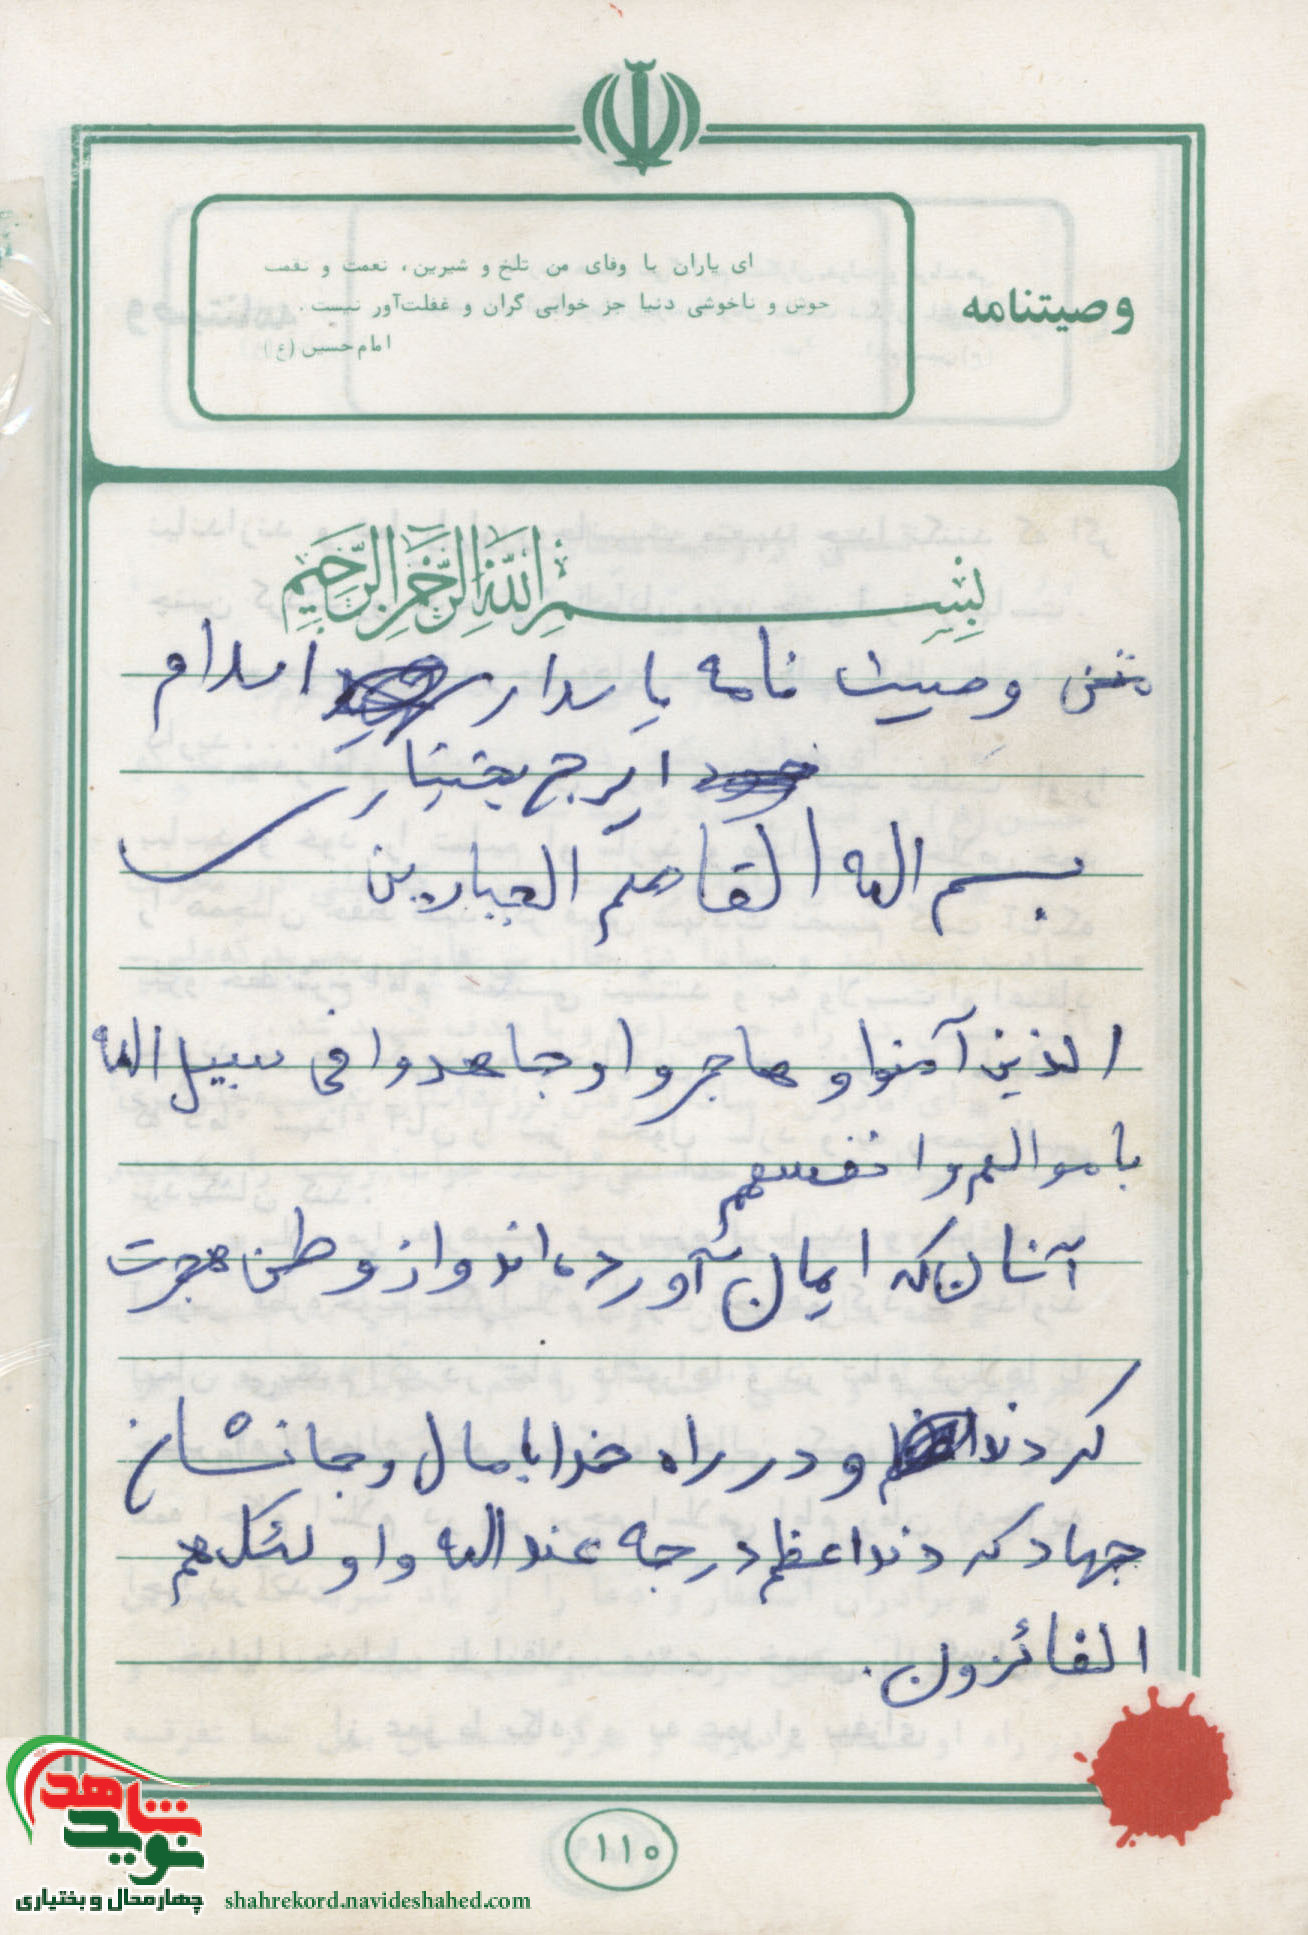 وصیتنامه
ای یاران با وفای من تلخ و شیرین، نعمت و نقمت
خوش و ناخوشی دنیا جز خوابی گران و غفلت‌آور نیست.
امام حسین (ع)
بسم الله الرحمن الرحیم
متن وصیت نامه پاسدار اسلام
ایرج بختیاری
بسم الله القاصم الجبارین
الذین آمنوا و هاجروا و جاهدوا فی سبیل الله
باموالهم وانفسهم
آنان که ایمان آورده اند و از وطن هجرت
کردند و در راه خدا با مال و جانشان
جهاد کردند اعظم درجه عند الله و اولئک هم
الفائزون.
۱۱۰
نوید شاهد
چهارمحال و بختیاری
shahrekord.navideshahed.com